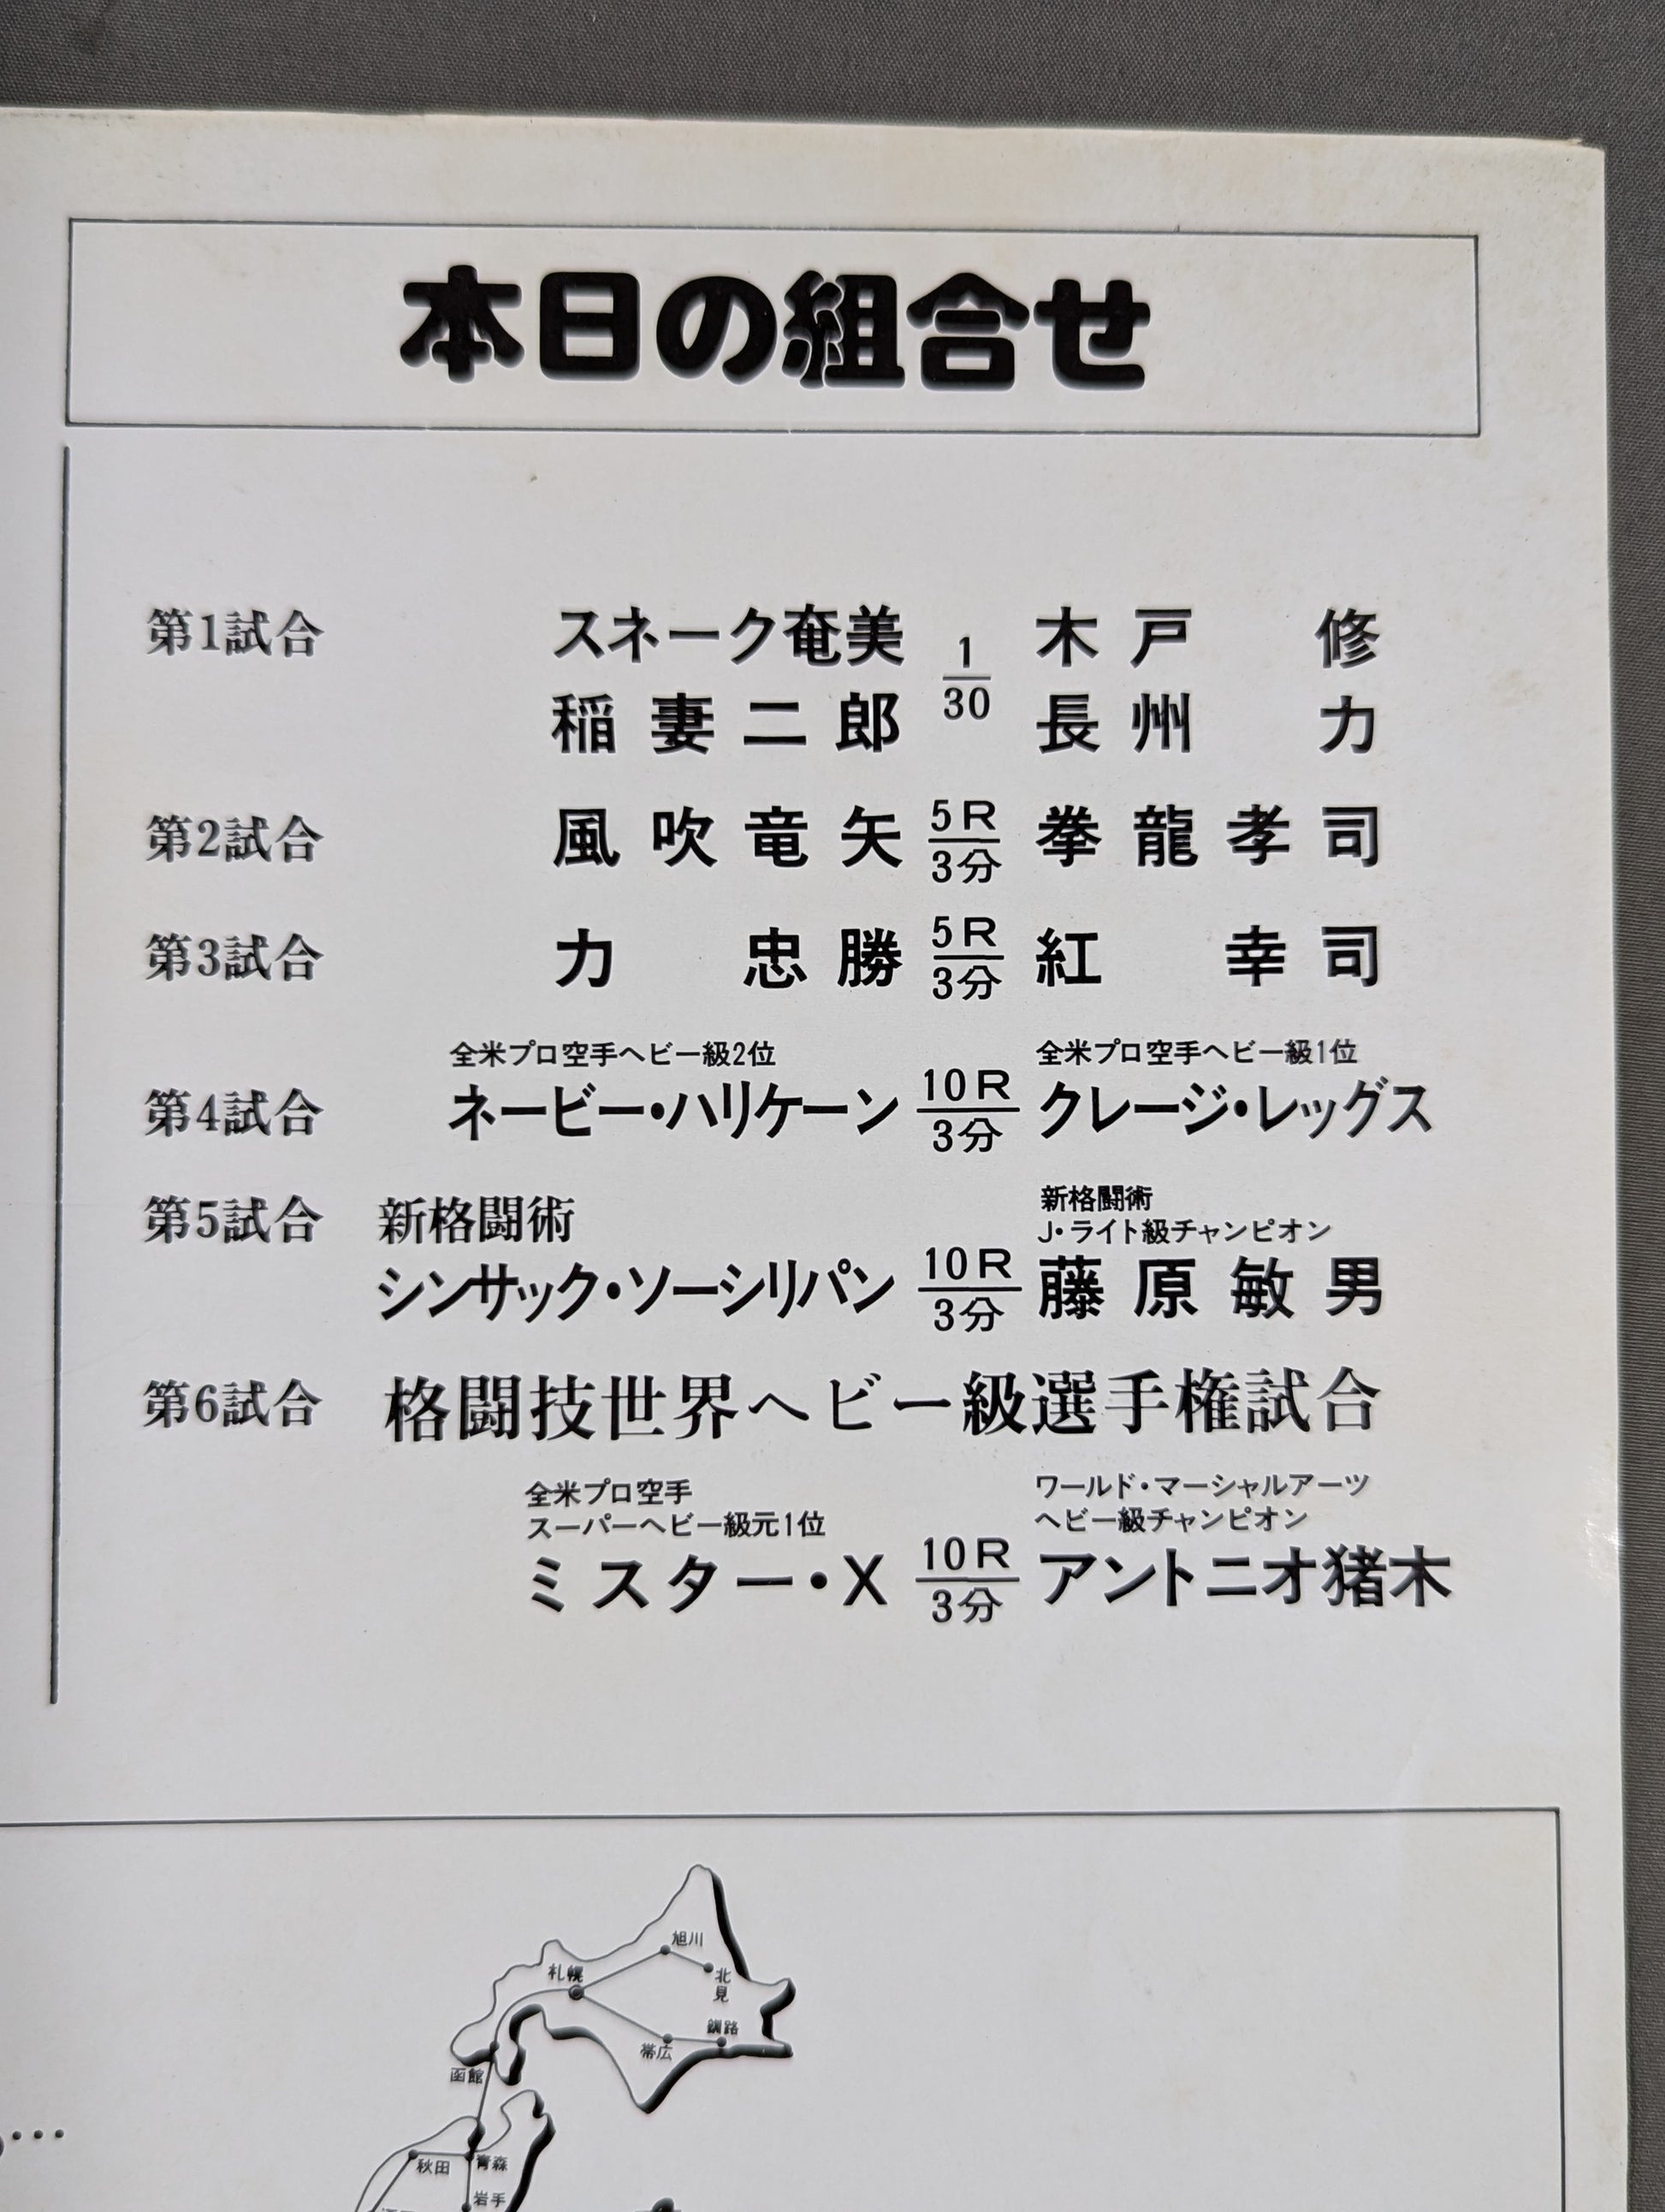 本日の組合せ
第1試合 スネーク奄美 1/30 木戸 修
稲妻二郎 長州 力
第2試合 風吹竜矢 5R/3分 拳龍孝司
第3試合 力 忠勝 5R/3分 紅 幸司
全米プロ空手ヘビー級2位 全米プロ空手ヘビー級1位
第4試合 ネービー・ハリケーン 10R/3分 クレージ・レッグス
第5試合 新格闘術 新格闘術
J・ライト級チャンピオン
シンサック・ソーシリパン 10R/3分 藤原敏男
第6試合 格闘技世界ヘビー級選手権試合
全米プロ空手 ワールド・マーシャルアーツ
スーパーヘビー級元1位 ヘビー級チャンピオン
ミスター・X 10R/3分 アントニオ猪木
旭川
札幌
北見
釧路
帯広
函館
秋田
青森
岩手